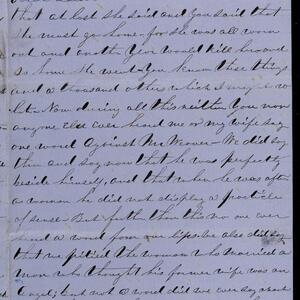 that at last she said and you said that
she must go home, for she was all worn
out and another Year would kill her and
so home she went. You know these things
and a thousand others which I might
. Now during all this neither You nor
any one else ever heard me or my wife say
one word against Mr Mower. We did say
then and say now that he was perfectly
beside himself, and that when he was after
a woman he did not display a particle
of sense. But farther than this no one ever
heard a word from our lips. We also did say
that we pitied the woman who married a
man who thought his former wife was an
Angel; but not a word did we ever say against